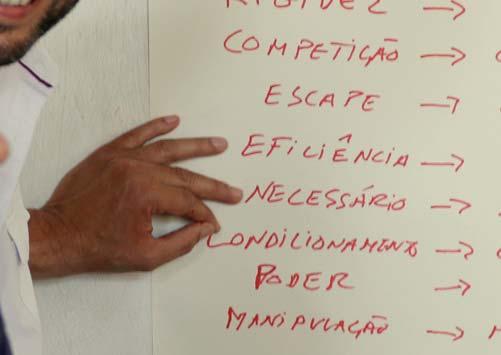 COMPETIÇÃO →
ESCAPE →
EFICIÊNCIA →
NECESSÁRIO →
CONDICIONAMENTO →
PODER →
MANIPULAÇÃO →